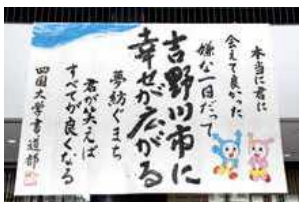 本当に君に
会えて良かった
嫌な一日だって
吉野川市に
幸せが広がる
夢紡ぐまち
君が笑えば
すべてが良くなる
四国大学書道部